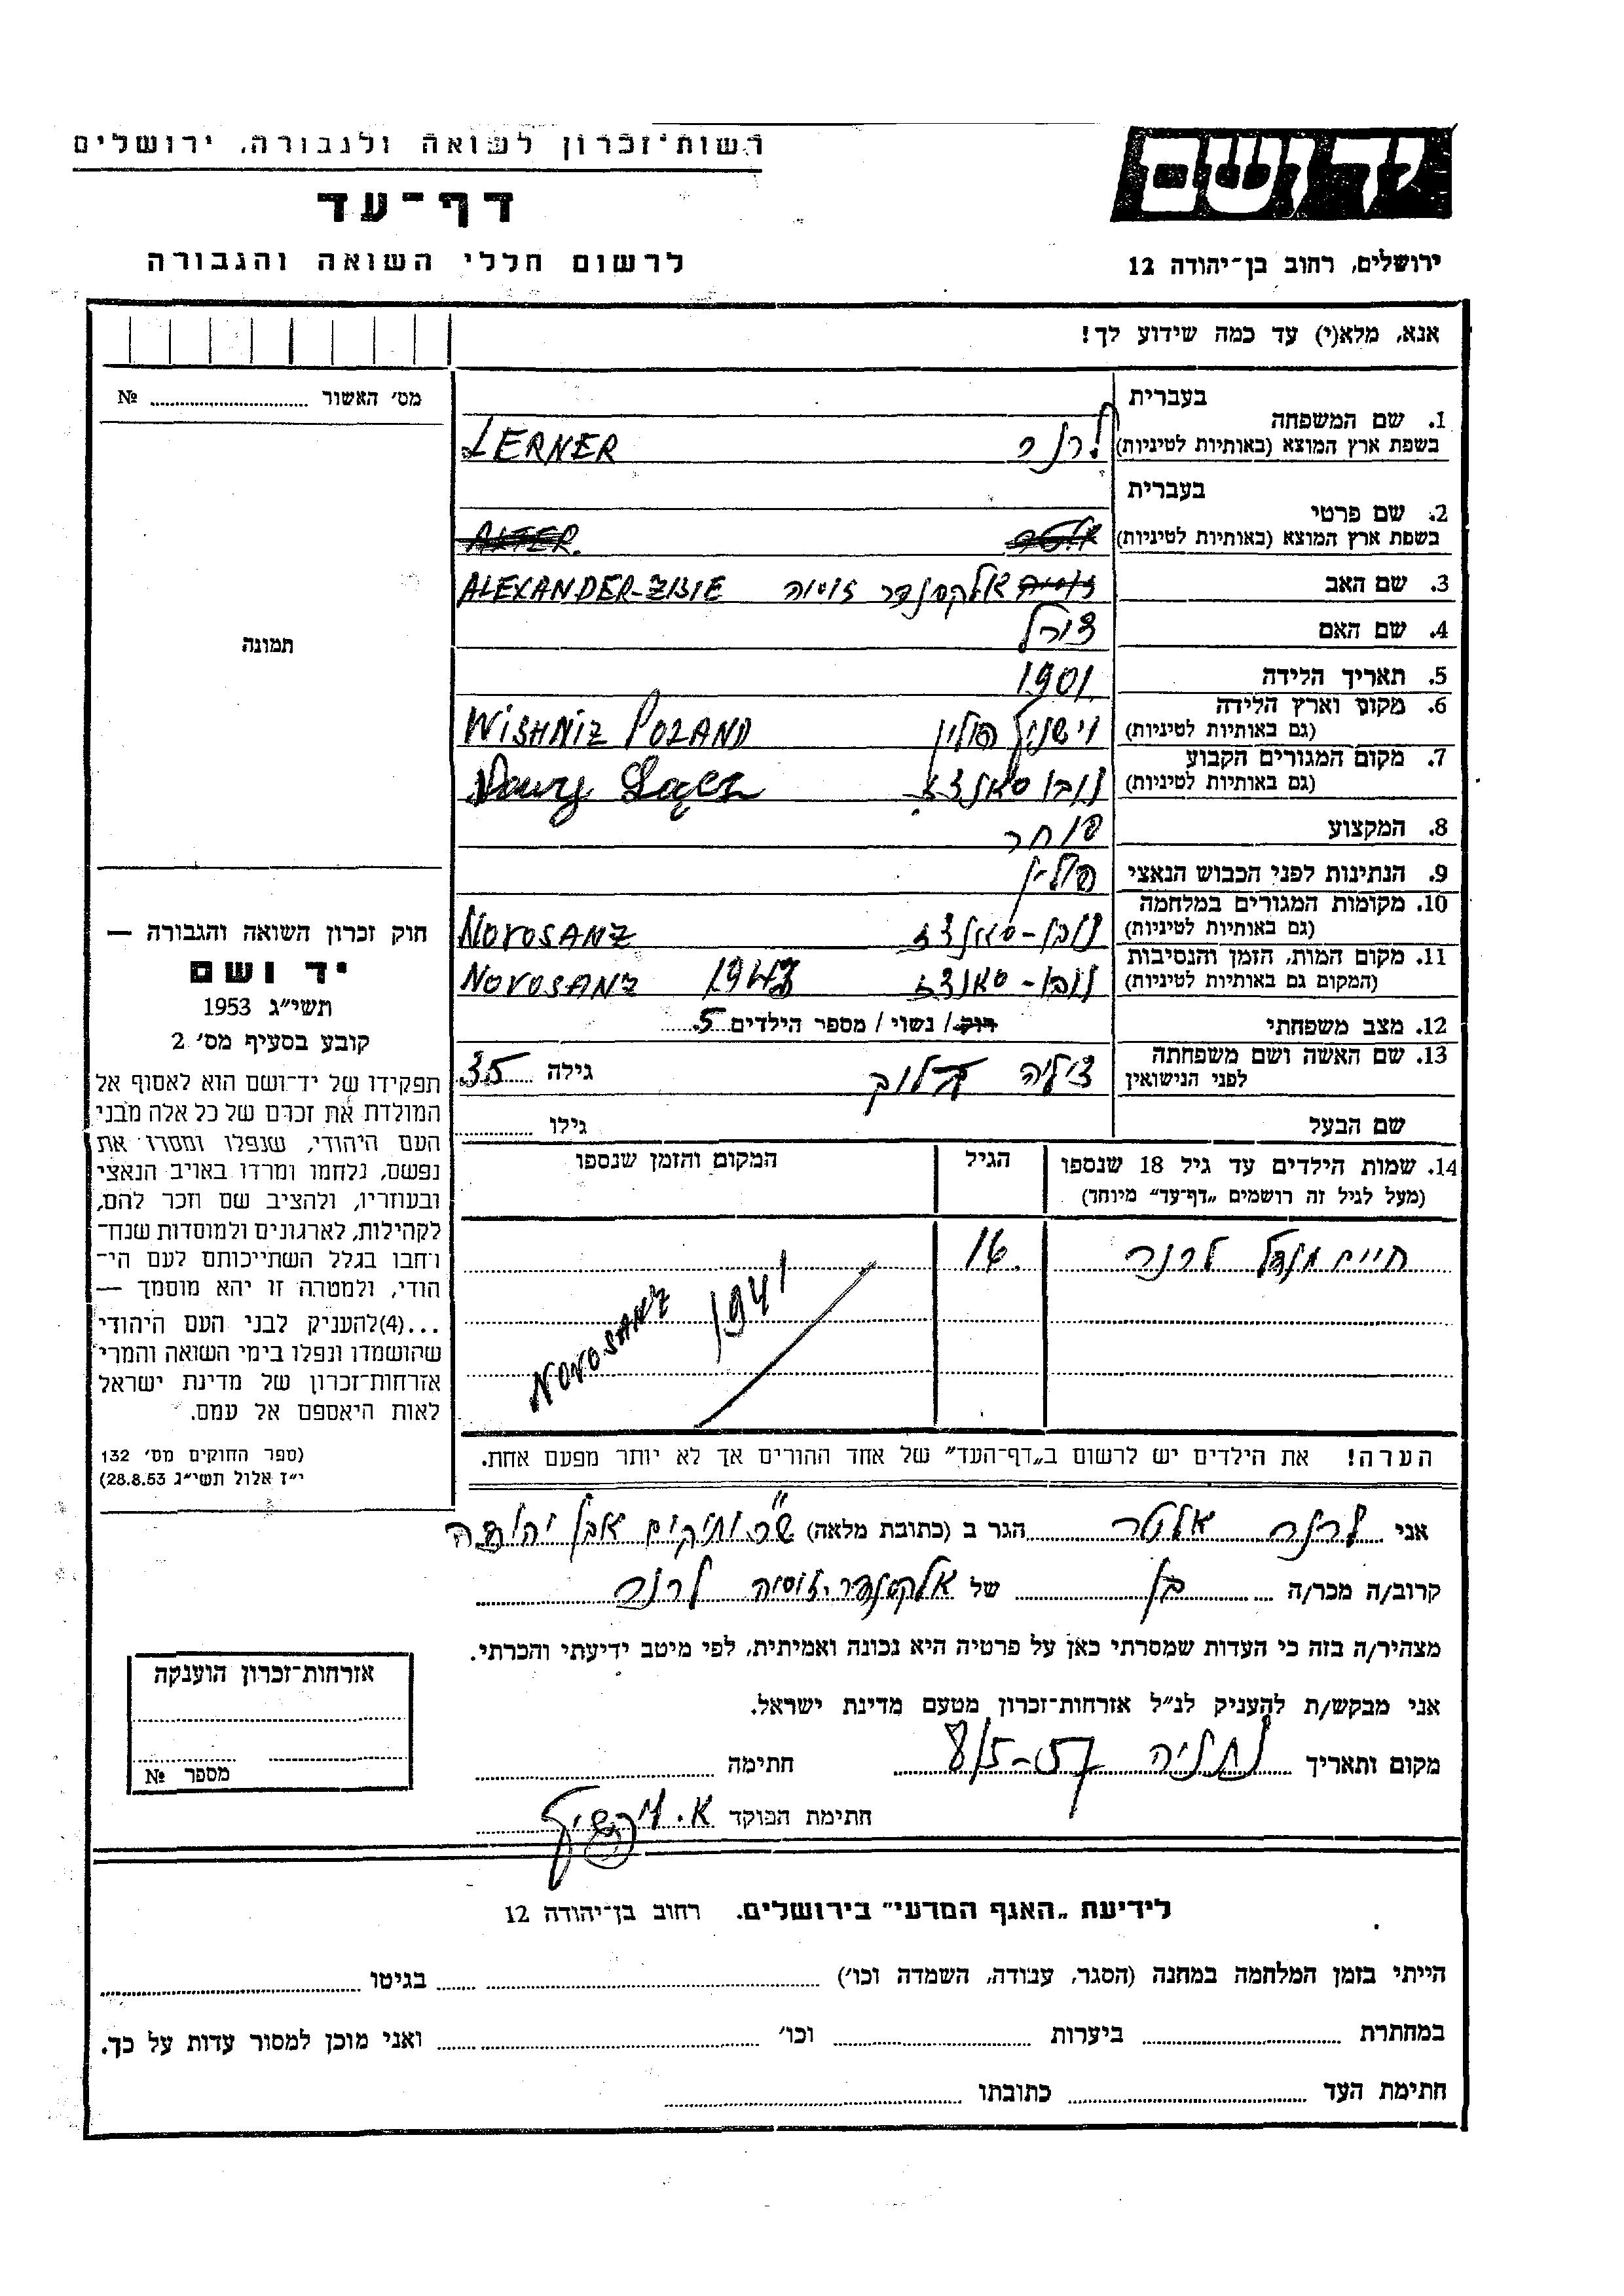 רשות־זכרון לשואה ולגבורה, ירושלים
דף־עד
לרשום חללי השואה והגבורה
יד ושם
ירושלים, רחוב בן־יהודה 12
אנא, מלא(י) עד כמה שידוע לך!
מס׳ האשור ........ №
תמונה
חוק זכרון השואה והגבורה —
יד ושם
תשי״ג 1953
קובע בסעיף מס׳ 2
תפקידו של יד־ושם הוא לאסוף אל
המולדת את זכרם של כל אלה מבני
העם היהודי, שנפלו ומסרו את
נפשם, נלחמו ומרדו באויב הנאצי
ובעוזריו, ולהציב שם וזכר להם,
לקהילות, לארגונים ולמוסדות שנח־
רחבו בגלל השתייכותם לעם הי־
הודי, ולמטרה זו יהא מוסמך —
...(4)להעניק לבני העם היהודי
שהושמדו ונפלו בימי השואה והמרי
אזרחות־זכרון של מדינת ישראל
לאות היאספם אל עמם.
(ספר החוקים מס׳ 132
י״ז אלול תשי״ג 28.8.53)
בעברית
1. שם המשפחה
בשפת ארץ המוצא (באותיות לטיניות) לרנר LERNER
בעברית
2. שם פרטי
בשפת ארץ המוצא (באותיות לטיניות) אלטר ALTER
3. שם האב אלקסנדר זוסיה ALEXANDER-ZISIE
4. שם האם
5. תאריך הלידה 1901
6. מקום וארץ הלידה
(גם באותיות לטיניות) וישניץ פולין WISHNIZ POLAND
7. מקום המגורים הקבוע
(גם באותיות לטיניות) נובו סאנדז Nowy
8. המקצוע סוחר
9. הנתינות לפני הכבוש הנאצי פולין
10. מקומות המגורים במלחמה
(גם באותיות לטיניות) נובו-סאנדז NOVOSANZ
11. מקום המות, הזמן והנסיבות
(המקום גם באותיות לטיניות) נובו-סאנדז 1943 NOVOSANZ
12. מצב משפחתי רוק/ נשוי / מספר הילדים 5
13. שם האשה ושם משפחתה
לפני הנישואין צילה בלוק גילה 35
שם הבעל גילו
14. שמות הילדים עד גיל 18 שנספו הגיל המקום והזמן שנספו
(מעל לגיל זה רושמים „דף־עד״ מיוחד)
חיים מנדל לרנר 16 NOVOSANZ 1941
הערה! את הילדים יש לרשום ב„דף־העד״ של אחד ההורים אך לא יותר מפעם אחת.
אני לרנר אלטר הגר ב (כתובת מלאה) ותיקים אבן יהודה
קרוב/ה מכר/ה בן של אלקסנדר-זוסיה לרנר
מצהיר/ה בזה כי העדות שמסרתי כאן על פרטיה היא נכונה ואמיתית, לפי מיטב ידיעתי והכרתי.
אני מבקש/ת להעניק לנ״ל אזרחות־זכרון מטעם מדינת ישראל.
מקום ותאריך נתניה 8/5-57 חתימה
חתימת הפוקד
אזרחות־זכרון הוענקה
מספר №
לידיעת „האגף המדעי״ בירושלים. רחוב בן־יהודה 12
הייתי בזמן המלחמה במחנה (הסגר, עבודה, השמדה וכו׳) בגיטו
במחתרת ביערות וכו׳ ואני מוכן למסור עדות על כך.
חתימת העד כתובתו